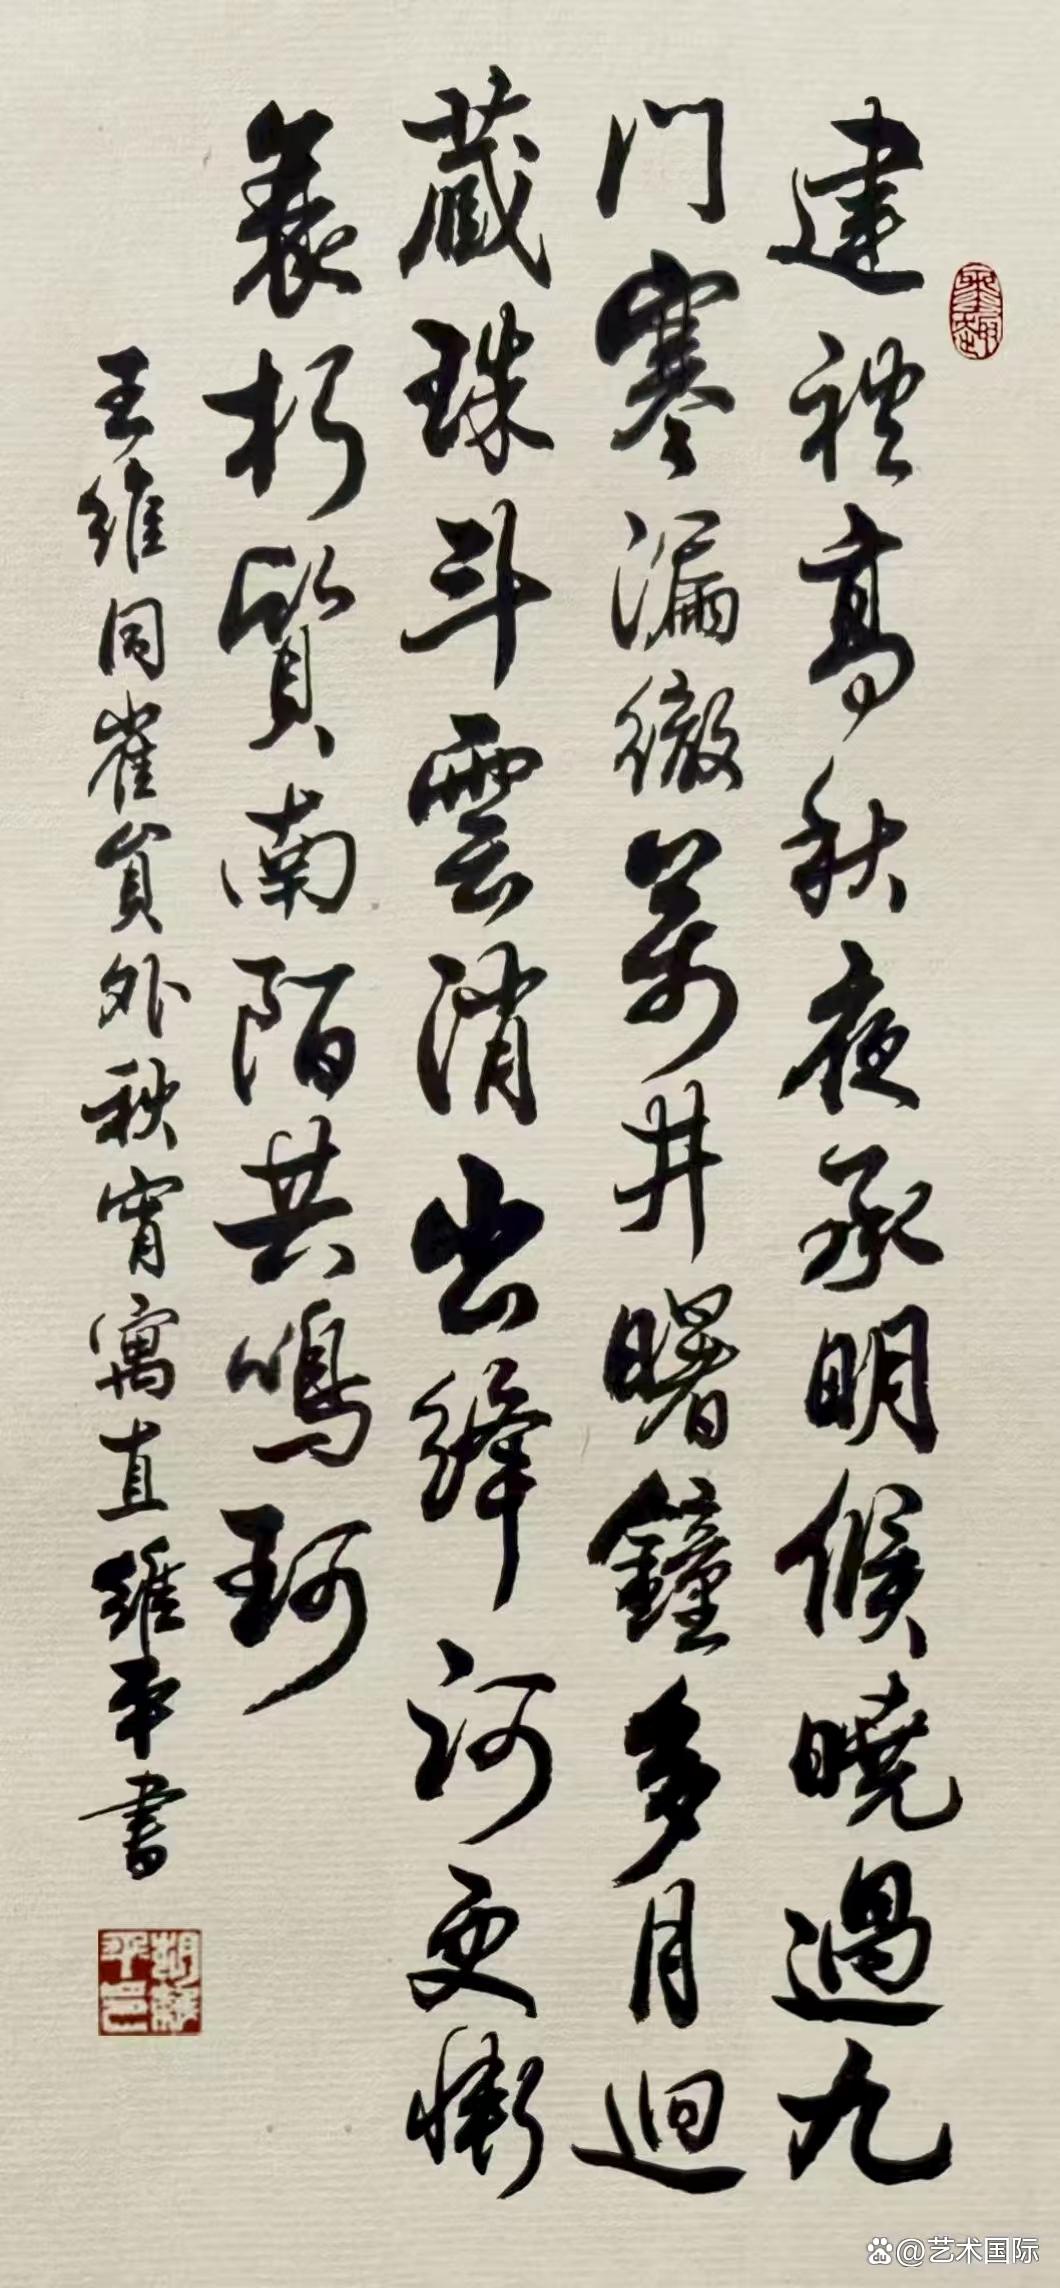 建禮高秋夜承明候曉過九
门寒漏徹萬井曙鐘多月迥
藏珠斗雲消出絳河更慚
衰朽質南陌共鳴珂
王維同崔員外秋宵寓直維平書
胡維平印
@艺术国际